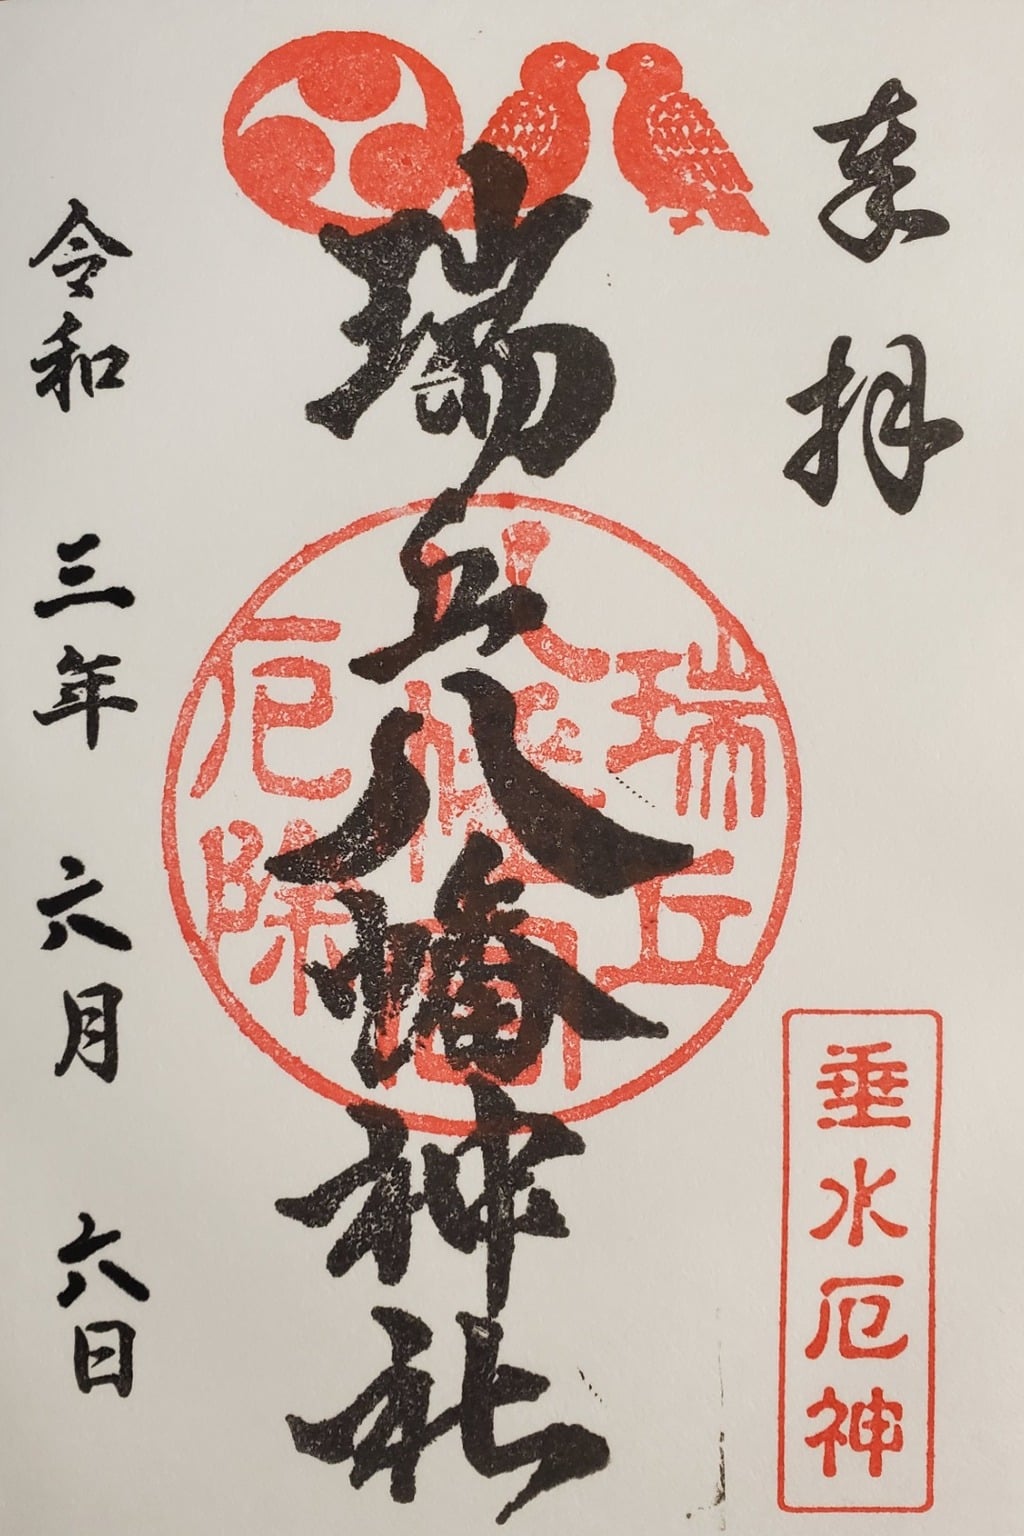 奉拝
垂水厄神
瑞丘八幡神社
瑞丘
八幡宮
厄除
令和三年六月六日